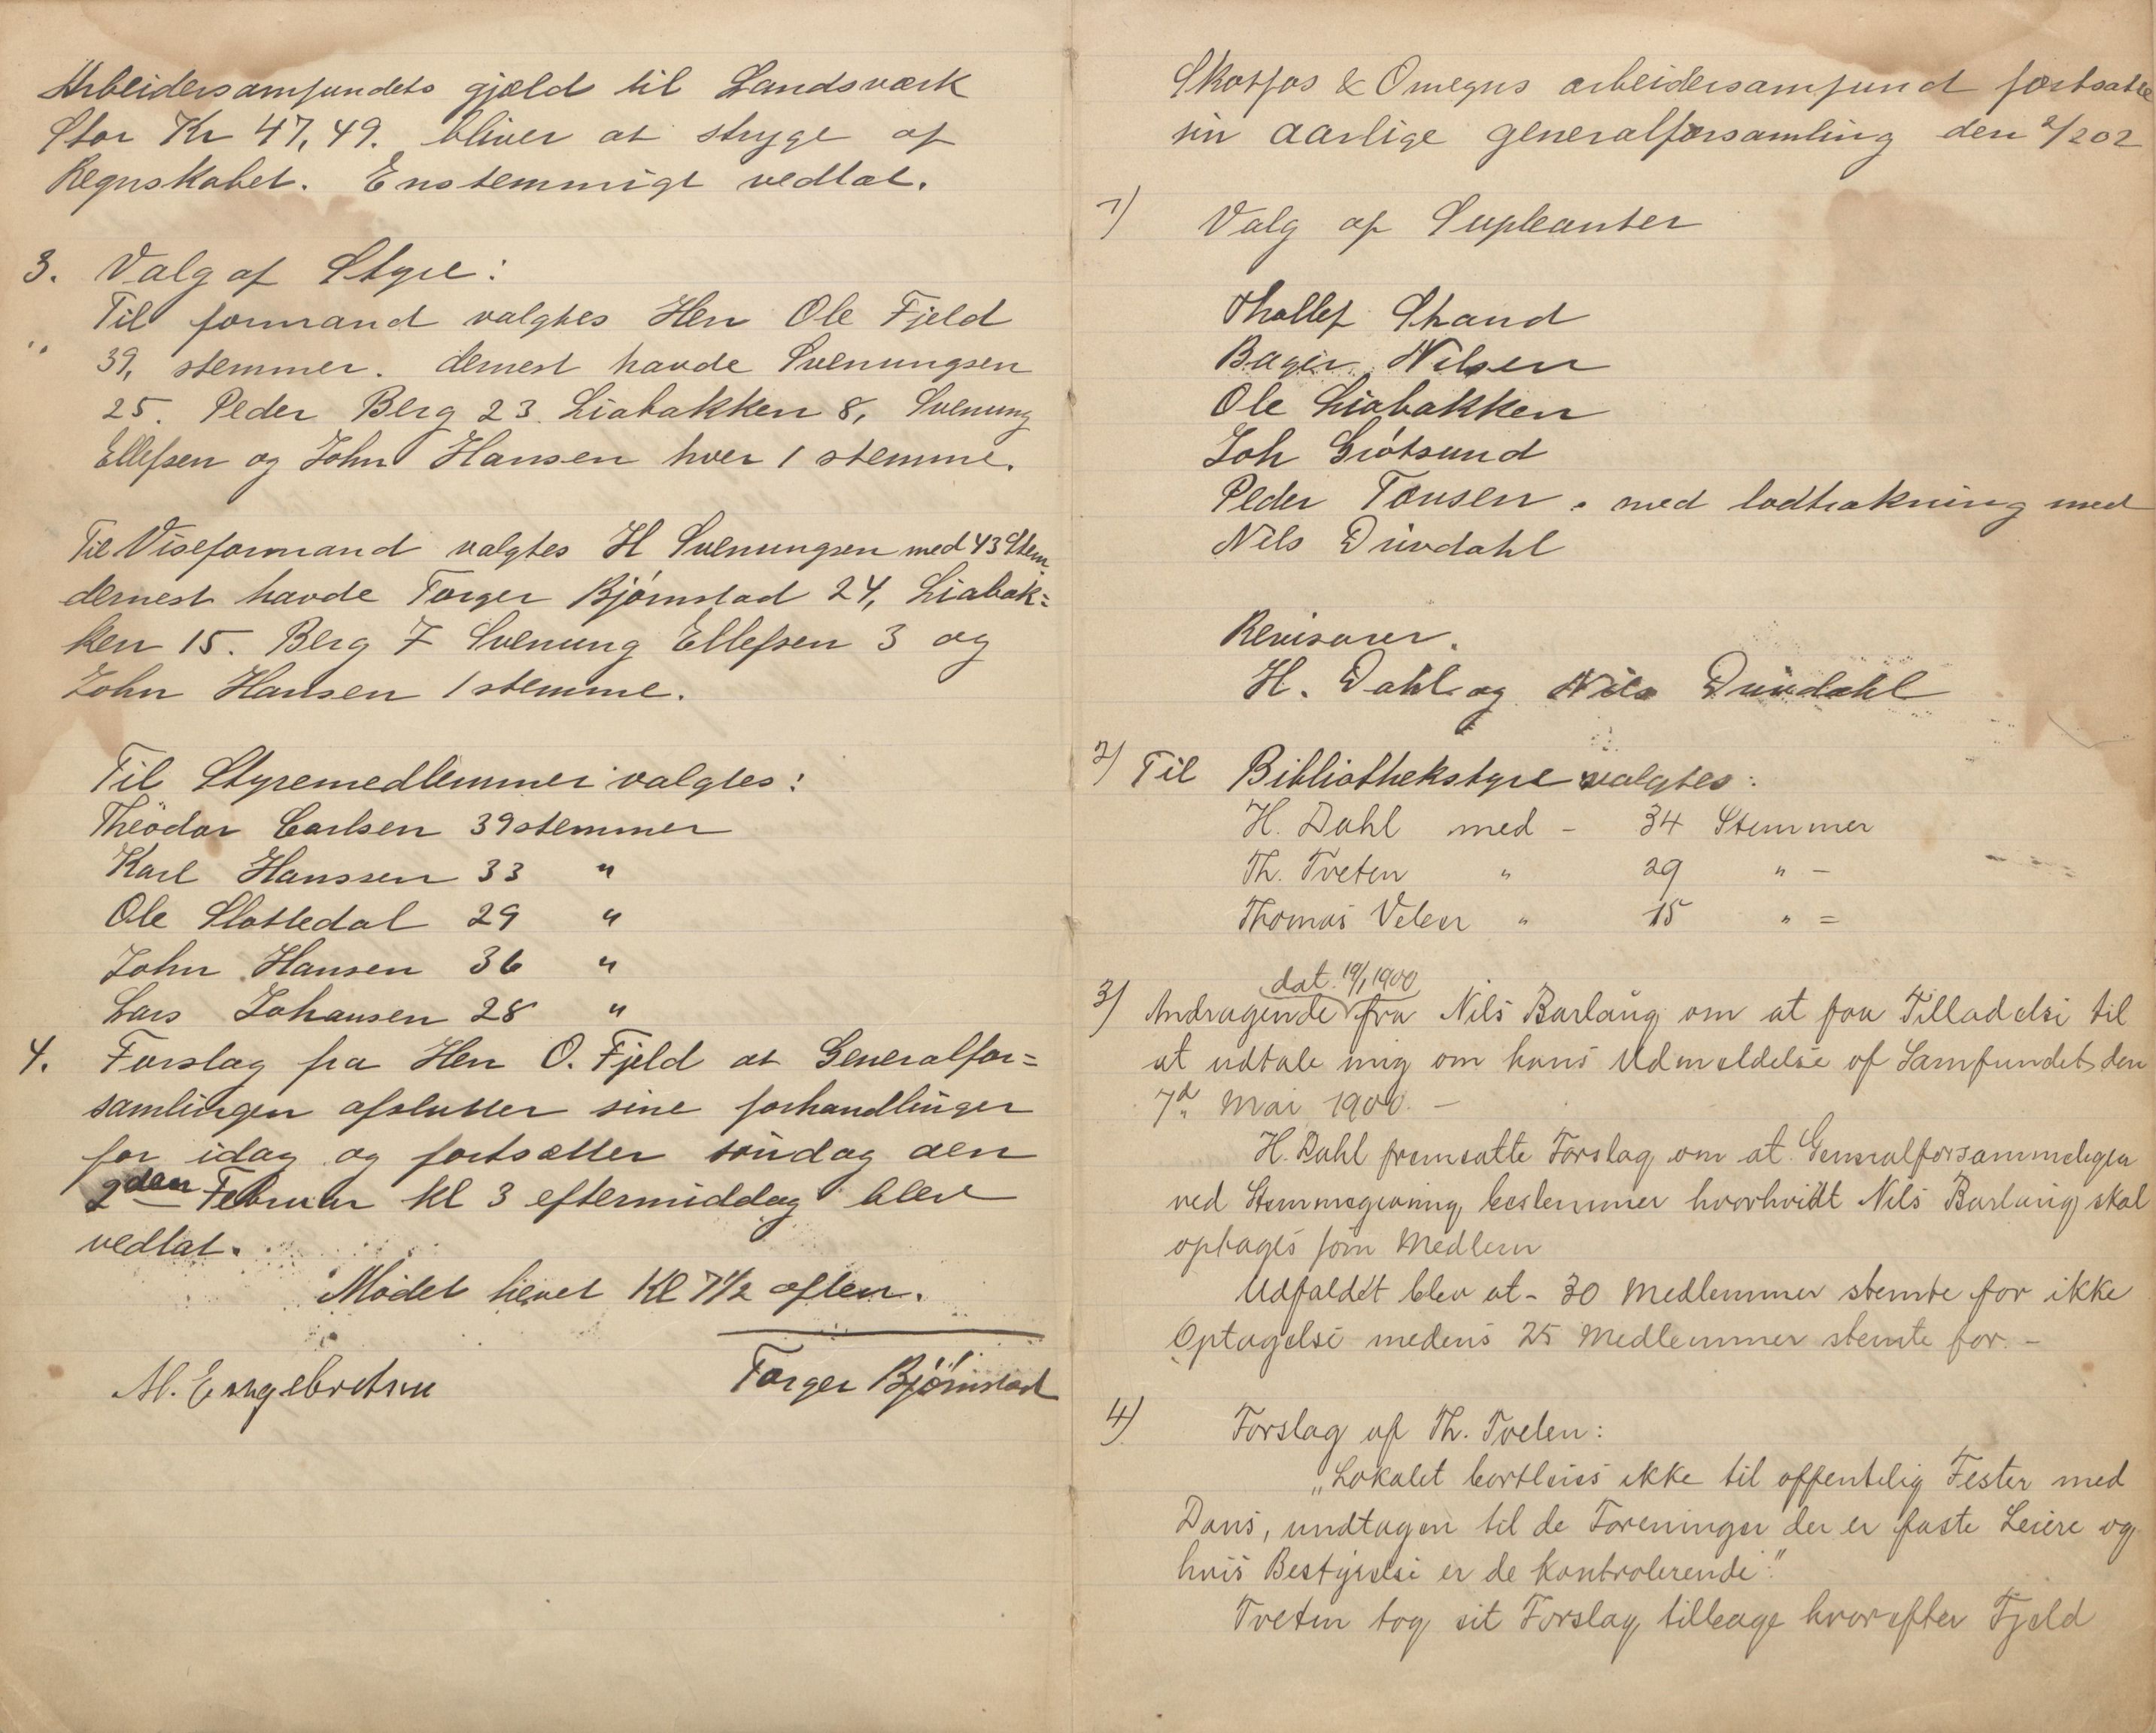 Arbeidersamfundets gjæld til Landsværk
Stor Kr 47,49. bliver at stryge af
Regnskabet. Enstemmigt vedtat.
3. Valg af Styre:
Til formand valgtes Herr Ole Fjeld
39, stemmer. dernest havde Svenungsen
25. Peder Berg 23. Liabakken 8, Svenung
Ellefsen og John Hansen hver 1 stemme.
Til Viseformand valgtes H Svenungsen med 43 Stem.
dernest havde Torger Bjørnstad 24, Liabak=
ken 15. Berg 7 Svenung Ellefsen 3 og
John Hansen 1 stemme.
Til Styremedlemmer valgtes:
Theodor Carlsen 39 stemmer
Karl Hanssen 33 "
Ole Slottedal 29 "
John Hansen 36 "
Lars Johansen 28 "
4. Forslag fra Herr O. Fjeld at Generalfor=
samlingen afslutter sine forhandlinger
for idag og fortsætter søndag den
2den Februar kl 3 eftermiddag blev
vedtat.
Mødet hevet Kl 7 1/2 aften.
M. Engebretsen Torger Bjørnstad
Skotfos & Omegns arbeidersamfund fortsatte
sin aarlige generalforsamling den 2/2 02
1) Valg af Supleanter
Thollef Strand
Bager Nilsen
Ole Liabakken
Joh Grotsund
Peder Tønsen. med lodtrækning med
Nils Duvdahl
Revisorer.
H. Dahl og Nils Duvdahl
2) Til Bibliothekstyre valgtes:
H. Dahl med - 34 Stemmer
Th. Tveten " 29 " -
Thomas Velen " 15 " =
dat. 19/1 1900
3) Andragende fra Nils Barlaug om at faa Tilladelse til
at udtale mig om hans Udmeldelse af Samfundet den
7d Mai 1900. -
H. Dahl fremsatte Forslag om at Generalforsammelingen
ved Stemmegivning bestemmer hvorhvidt Nils Barlaug skal
optages som Medlem
Udfaldet blev at - 30 Medlemmer stemte for ikke
Optagelse medens 25 Medlemmer stemte for. -
4) Forslag af Th. Tveten:
"Lokalet bortleies ikke til offentelig Fester med
Dans, undtagen til de Foreninger der er faste Leiere og
hvis Bestyrelse er de kontrolerende."
Tveten tog sit Forslag tilbage hvorefter Fjeld